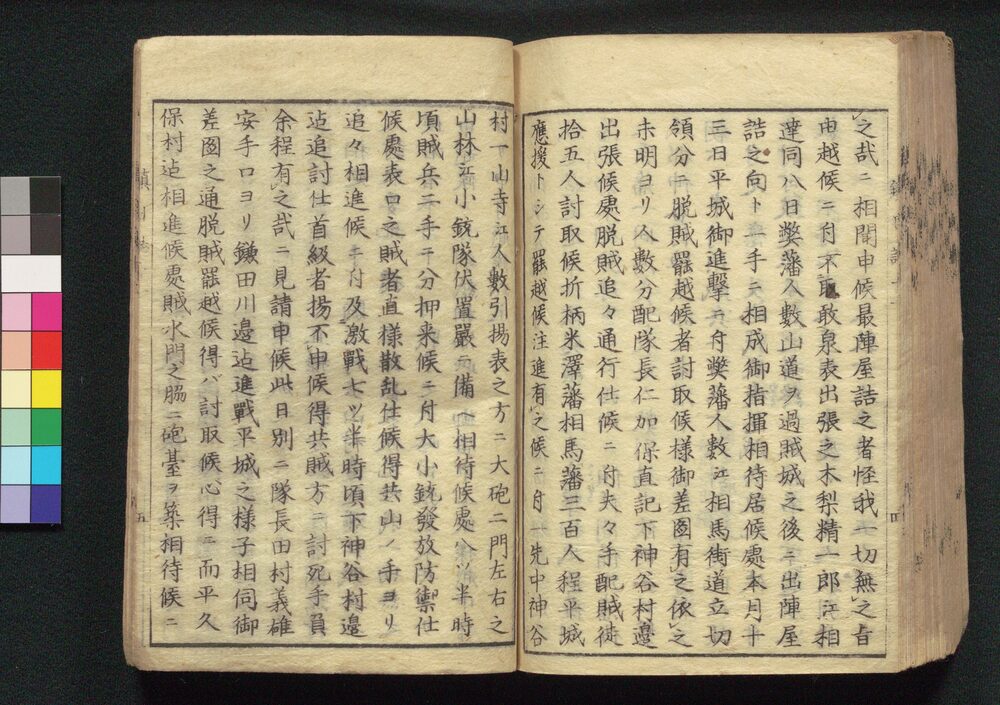 之哉ニ相聞申候最陣屋詰之者怪我一切無之旨
申越候ニ付不取敢泉表出張之木梨精一郎江相
達同八日弊藩人數山道ヲ過賊城之後ニ出陣屋
詰之向ト一手ニ相成御指揮相待居候處本月十
三日平城御進撃ニ付弊藩人數江相馬街道立切
領分ニ脱賊罷越候者討取候様御差圖有之依之
未明ヨリ人數分配隊長仁加保直記下神谷村邊
出張候處脱賊追々通行仕候ニ付夫々手配賊徒
拾五人討取候折柄米澤藩相馬藩三百人程平城
應援トシテ罷越候注進有之候ニ付一先中神谷
村一山寺江人數引揚表之方ニ大砲二門左右之
山林江小銃隊伏置嚴ニ備相待候處八ツ半時
頃賊兵二手ニ分押来候ニ付大小銃發放防禦仕
候處表口之賊者直様散乱仕候得共山ノ手ヨリ
追々相進候ニ付及激戰七ツ半時頃下神谷村邊
迠追討仕首級者揚不申候得共賊方ニ討死手負
余程有之哉ニ見請申候此日別ニ隊長田村義雄
安手口ヨリ鎌田川邊迠進戰平城之様子相伺御
差圖之通脱賊罷越候得バ討取候心得ニ而平久
保村迠相進候處賊水門之脇ニ砲臺ヲ築相待候ニ
四
五